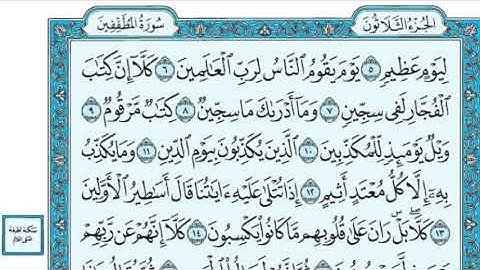 الجزء الثلاثون
سورة المطففين
لِيَوْمٍ عَظِيمٍ ٥ يَوْمَ يَقُومُ النَّاسُ لِرَبِّ الْعَالَمِينَ ٦ كَلَّا إِنَّ كِتَابَ
الْفُجَّارِ لَفِي سِجِّينٍ ٧ وَمَا أَدْرَاكَ مَا سِجِّينٌ ٨ كِتَابٌ مَّرْقُومٌ ٩
وَيْلٌ يَوْمَئِذٍ لِّلْمُكَذِّبِينَ ١٠ الَّذِينَ يُكَذِّبُونَ بِيَوْمِ الدِّينِ ١١ وَمَا يُكَذِّبُ
بِهِ إِلَّا كُلُّ مُعْتَدٍ أَثِيمٍ ١٢ إِذَا تُتْلَى عَلَيْهِ آيَاتُنَا قَالَ أَسَاطِيرُ الْأَوَّلِينَ
١٣ كَلَّا بَلْ رَانَ عَلَى قُلُوبِهِم مَّا كَانُوا يَكْسِبُونَ ١٤ كَلَّا إِنَّهُمْ عَن رَّبِّهِمْ